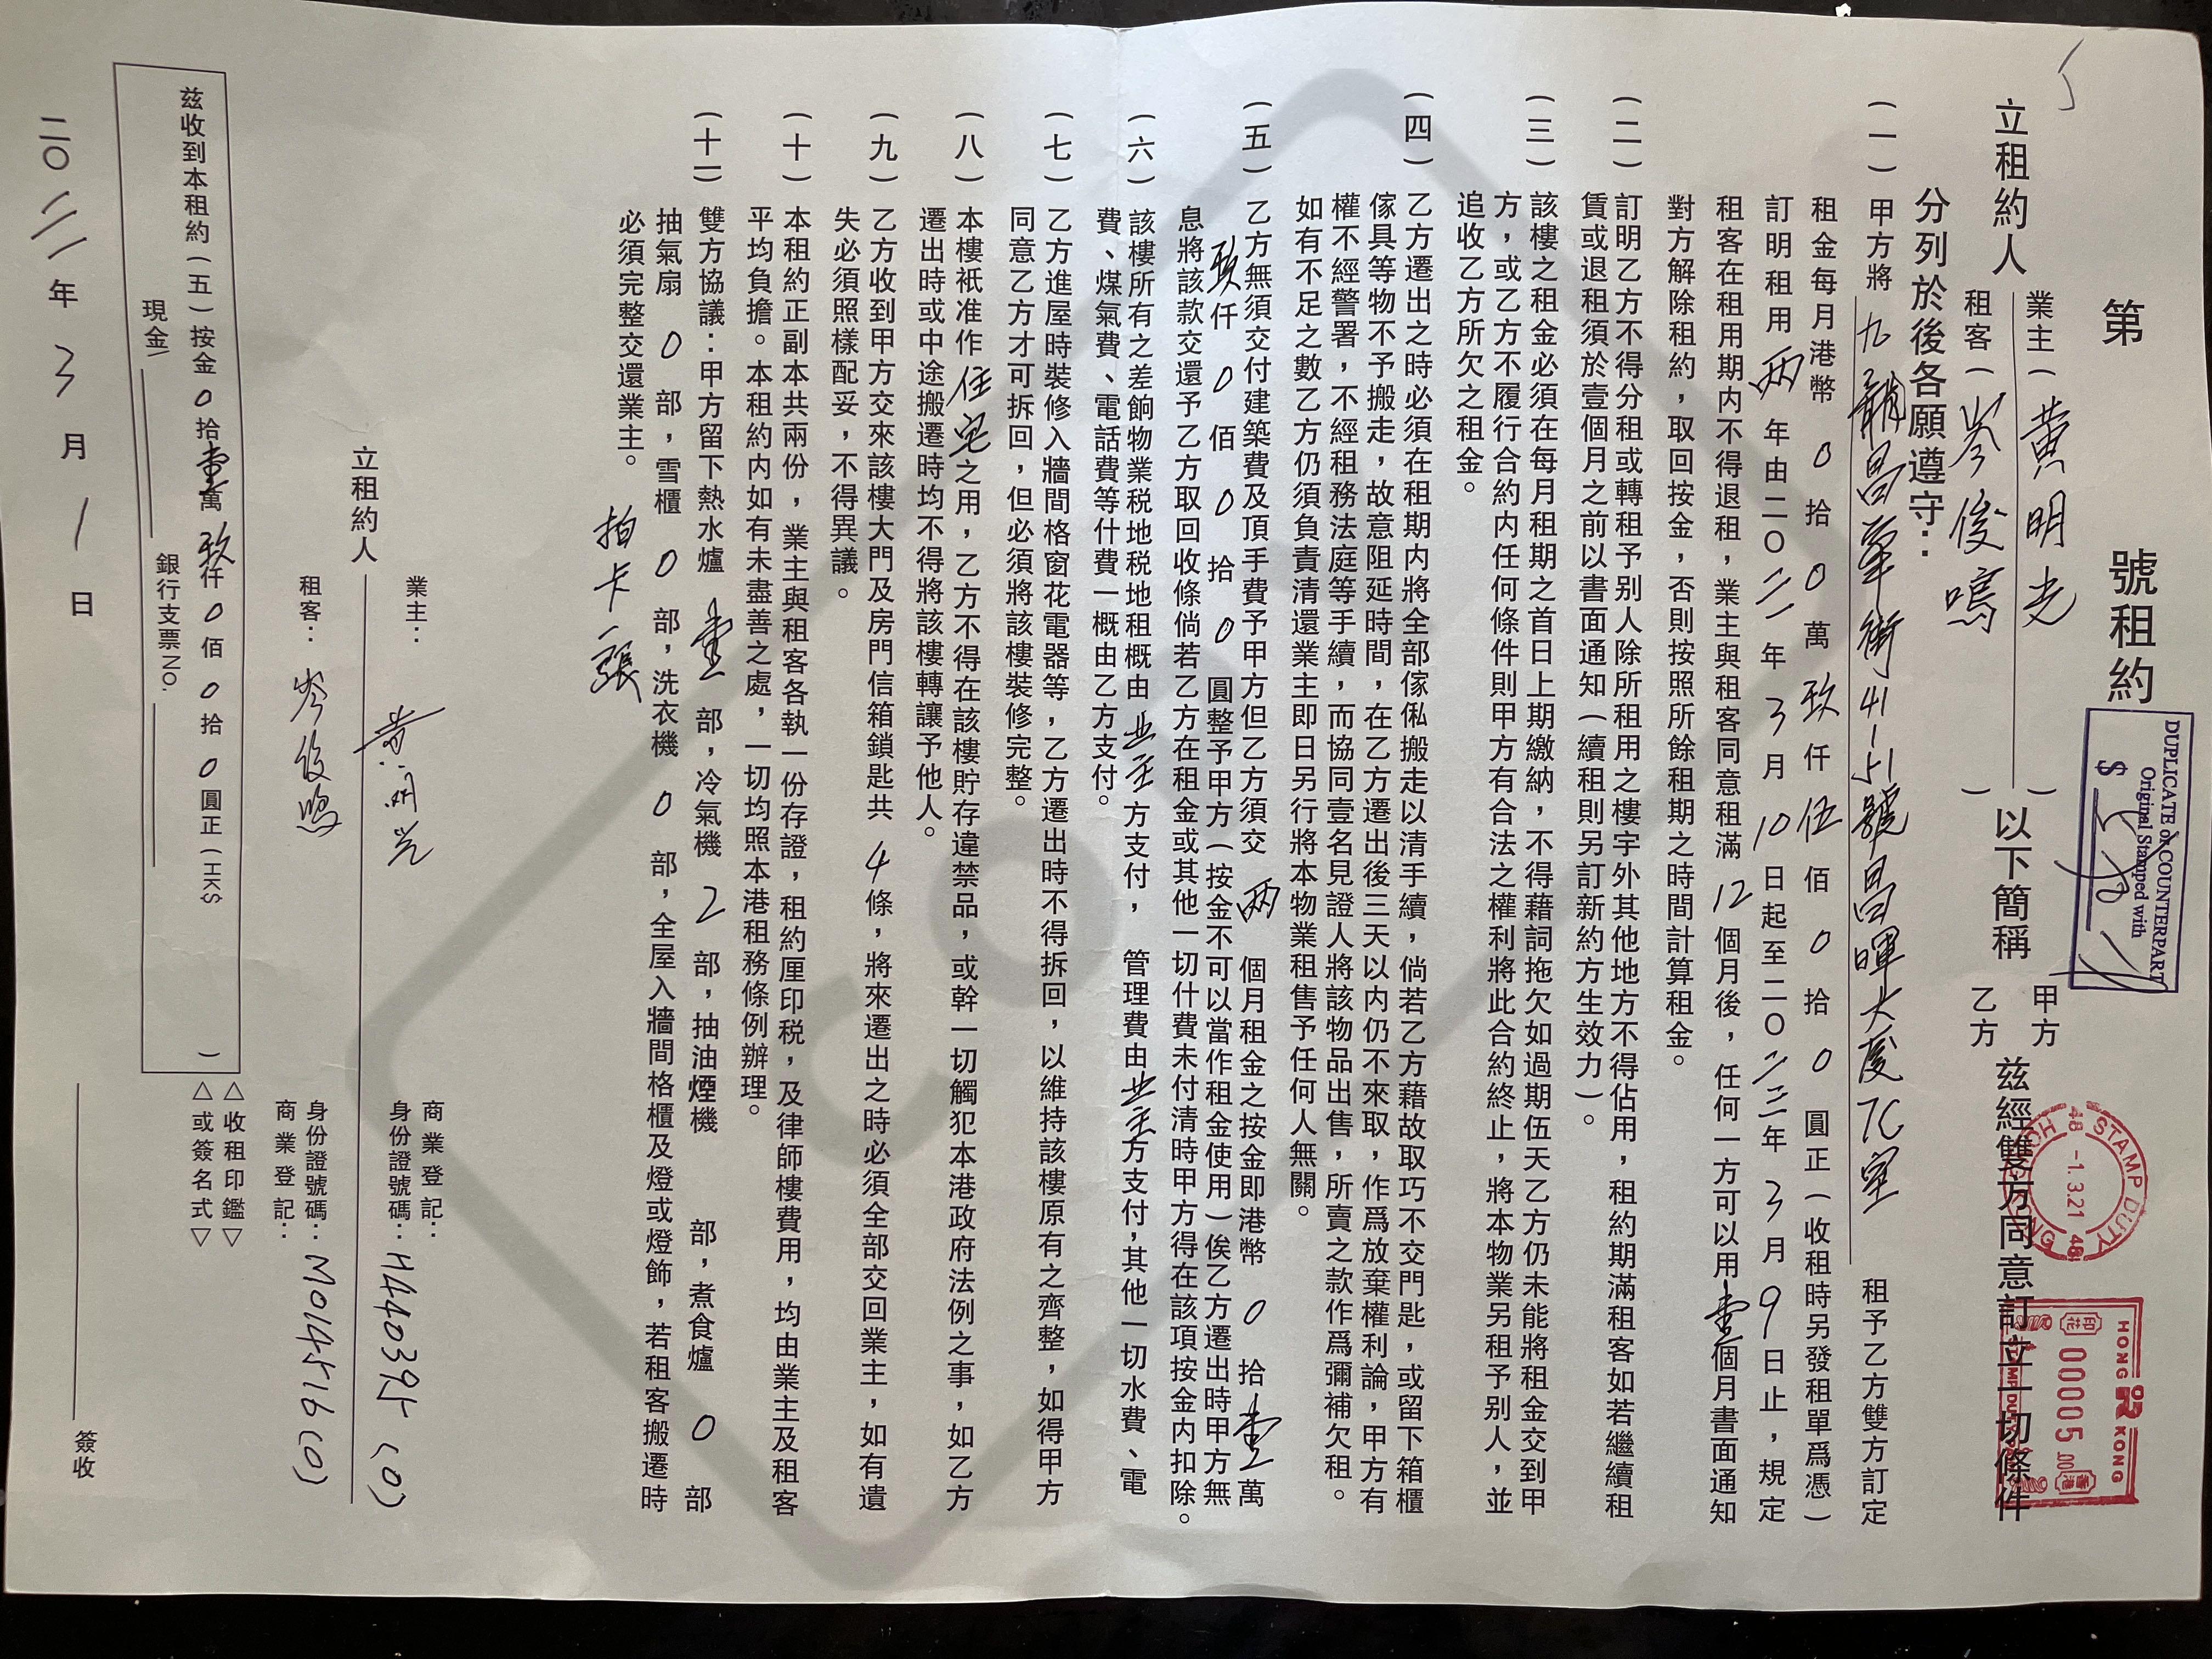 第 號租約
DUPLICATE or COUNTERPART
Original Stamped with
$ 5.00
STAMP DUTY HONG KONG
48 -1.3.21 48
HONG KONG
00005.00
印花
香港
STAMP DUTY
立租約人 業主(黃明光)以下簡稱甲方 茲經雙方同意訂立一切條件
租客(岑俊鳴)乙方
分列於後各願遵守:
(一)甲方將九龍昌華街41-51號昌暉大廈7C室租予乙方雙方訂定
租金每月港幣0拾0萬玖仟伍佰0拾0圓正(收租時另發租單爲憑)
訂明租用兩年由二〇二一年3月10日起至二〇二三年3月9日止,規定
租客在租用期內不得退租,業主與租客同意租滿12個月後,任何一方可以用壹個月書面通知
對方解除租約,取回按金,否則按照所餘租期之時間計算租金。
(二)訂明乙方不得分租或轉租予別人除所租用之樓宇外其他地方不得佔用,租約期滿租客如若繼續租
賃或退租須於壹個月之前以書面通知(續租則另訂新約方生效力)。
(三)該樓之租金必須在每月租期之首日上期繳納,不得藉詞拖欠如過期伍天乙方仍未能將租金交到甲
方,或乙方不履行合約內任何條件則甲方有合法之權利將此合約終止,將本物業另租予別人,並
追收乙方所欠之租金。
(四)乙方遷出之時必須在租期內將全部傢俬搬走以清手續,倘若乙方藉故取巧不交門匙,或留下箱櫃
傢具等物不予搬走,故意阻延時間,在乙方遷出後三天以內仍不來取,作爲放棄權利論,甲方有
權不經警署,不經租務法庭等手續,而協同壹名見證人將該物品出售,所賣之款作爲彌補欠租。
如有不足之數乙方仍須負責清還業主即日另行將本物業租售予任何人無關。
(五)乙方無須交付建築費及頂手費予甲方但乙方須交兩個月租金之按金即港幣0拾壹萬
玖仟0佰0拾0圓整予甲方(按金不可以當作租金使用)俟乙方遷出時甲方無
息將該款交還予乙方取回收條倘若乙方在租金或其他一切什費未付清時甲方得在該項按金內扣除。
(六)該樓所有之差餉物業税地税地租概由业主方支付,管理費由业主方支付,其他一切水費、電
費、煤氣費、電話費等什費一概由乙方支付。
(七)乙方進屋時裝修入牆間格窗花電器等,乙方遷出時不得拆回,以維持該樓原有之齊整,如得甲方
同意乙方才可拆回,但必須將該樓裝修完整。
(八)本樓祇准作住宅之用,乙方不得在該樓貯存違禁品,或幹一切觸犯本港政府法例之事,如乙方
遷出時或中途搬遷時均不得將該樓轉讓予他人。
(九)乙方收到甲方交來該樓大門及房門信箱鎖匙共4條,將來遷出之時必須全部交回業主,如有遺
失必須照樣配妥,不得異議。
(十)本租約正副本共兩份,業主與租客各執一份存證,租約厘印税,及律師樓費用,均由業主及租客
平均負擔。本租約內如有未盡善之處,一切均照本港租務條例辦理。
(十一)雙方協議:甲方留下熱水爐壹部,冷氣機2部,抽油煙機 部,煮食爐0部
抽氣扇0部,雪櫃0部,洗衣機0部,全屋入牆間格櫃及燈或燈飾,若租客搬遷時
必須完整交還業主。
拍卡一張
立租約人
業主:黃明光
商業登記:
身份證號碼:H440395(0)
租客:岑俊鳴
身份證號碼:M014516(0)
商業登記:
茲收到本租約(五)按金0拾壹萬玖仟0佰0拾0圓正(HK$ )
現金/ 銀行支票NO.
△收租印鑑▽
△或簽名式▽
簽收
二〇二一年3月1日